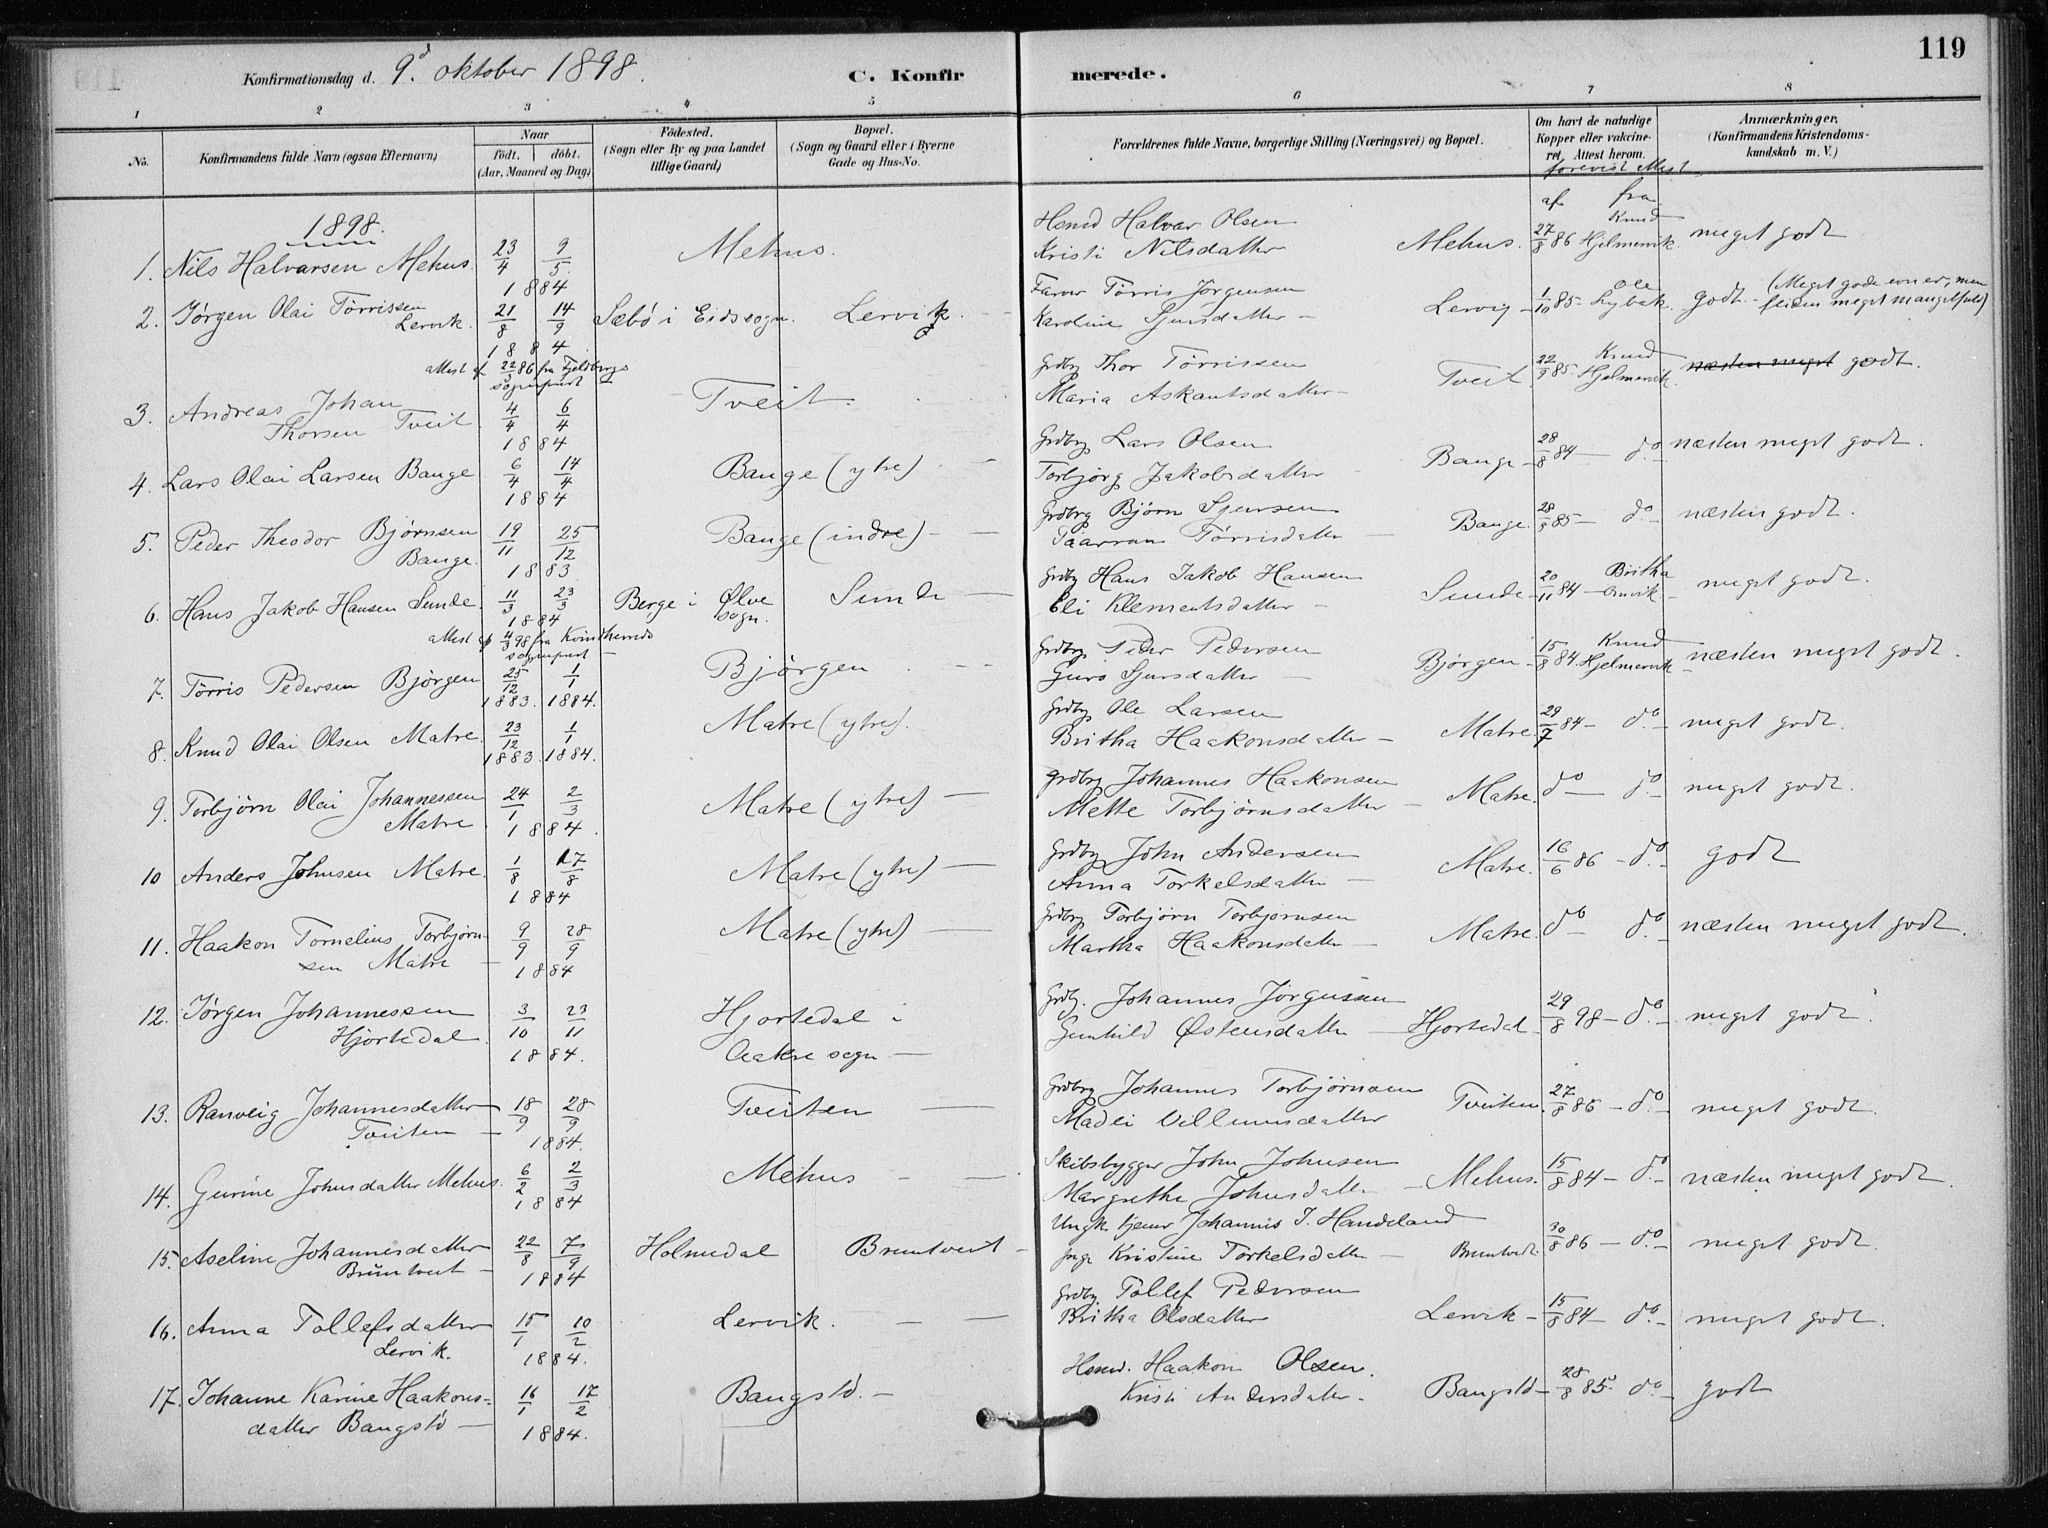 119
Konfirmationsdag d. 9d. oktober 1898.
C. Konfirmerede.
1 2 3 4 5 6 7 8
No.
Konfirmandens fulde Navn (ogsaa Efternavn)
Naar
født. døbt.
(Aar, Maaned og Dag)
Fødested.
(Sogn eller By og paa Landet
tillige Gaard)
Bopæl.
(Sogn og Gaard eller i Byerne
Gade og Hus-No.
Forældrenes fulde Navne, borgerlige Stilling (Næringsvei) og Bopæl.
Om havt de naturlige
Kopper eller vakcine-
ret. Attest herom.
Anmærkninger.
(Konfirmandens Kristendoms-
kundskab m. V.)
forevist Attest
af fra
1898.
1. Nils Halvarsen Mehus. 23/4 9/5 1884 Mehus. Husmd Halvar Olsen
Kristi Nilsdatter Mehus. 27/8 86 Knud Hjelmervik. meget godt
2. Jørgen Olai Tørrissen
Lervik. 21/8 14/9 1884 Sæbø i Eids sogn. Lervik. Farver Tørris Jørgensen
Karoline Sjursdatter Lervig 1/10 85 Ole Lybæk. godt. (Meget gode evner, men
fliden meget mangelfuld)
Attest af 22/3 86 fra Fjelbergs
sogneprest
3. Andreas Johan
Thorsen Tveit 4/4 6/4 1884 Tveit. Grdbrg Thor Tørrissen
Maria Askautsdatter Tveit 22/9 85 Knud Hjelmervik næsten meget godt.
4. Lars Olai Larsen Bauge 6/4 14/4 1884 Bauge (ytre) Grdbrg Lars Olsen
Torbjørg Jakobsdatter Bauge 28/8 84 do næsten meget godt.
5. Peder Theodor Bjørnsen
Bauge. 19/11 25/12 1883 Bauge (indre) Grdbrg Bjørn Sjursen
Tørrisdatter Bauge. 28/8 85 do næsten godt.
6. Hans Jakob Hansen Sunde. 11/3 23/3 1884 Berge i Ølve
sogn. Sunde Grdbrg Hans Jakob Hansen
Eli Klementsdatter Sunde 20/11 84 Britha meget godt.
Attest af 4/3 98 fra Kvindherreds
sogneprest
7. Tørris Pedersen Bjørgen 25/12 1883. 1/1 1884. Bjørgen Grdbrg Peder Pedersen
Guro Sjursdatter Bjørgen 15/8 84 Knud Hjelmervik næsten meget godt.
8. Knud Olai Olsen Matre. 23/12 1883. 1/1 1884. Matre (ytre). Grdbrg Ole Larsen
Britha Haakonsdatter Matre. 29/7 84 do meget godt.
9. Torbjørn Olai Johannessen
Matre. 24/1 2/3 1884. Matre (ytre) Grdbrg Johannes Haakonsen
Mette Torbjørnsdatter Matre. do do meget godt.
10 Anders Johnsen Matre. 1/8 17/8 1884 Matre (ytre) Grdbrg John Andersen
Anna Torkelsdatter Matre. 16/6 86 do godt
11. Haakon Tornelius Torbjørn-
sen Matre 9/9 28/9 1884 Matre (ytre) Grdbrg Torbjørn Torbjørnsen
Martha Haakonsdatter Matre. do do næsten meget godt.
12. Jørgen Johannessen
Hjortedal. 3/10 23/11 1884. Hjortedal i
Aakre sogn Grdbr. Johannes Jørgensen
Gunhild Østensdatter Hjortedal 29/8 98 do meget godt.
13. Ranveig Johannesdatter
Tveiten 18/9 28/9 1884. Tveiten Grdbrg Johannes Torbjørnsen
Madei Villumsdatter Tveiten. 27/8 86 do meget godt.
14. Gurine Johnsdatter Mehus. 6/2 2/3 1884 Mehus Skibsbygger John Johnsen
Margrethe Johnsdatter Mehus. 15/8 84 do næsten meget godt.
15. Aseline Johannesdatter
Bruntveit 22/8 7/9 1884 Holmedal Bruntveit Ungk. tjener Johannes J. Handeland
Pige Kristine Torkelsdatter Bruntvedt. 30/8 86 do meget godt
16. Anna Tollefsdatter
Lervik. 15/1 10/2 1884. Lervik. Grdbrg Tollef Pedersen
Britha Olsdatter Lervik 15/8 84 do meget godt.
17. Johanne Karine Haakons-
datter Bangstø 16/1 17/2 1884. Bangstø. Husmd. Haakon Olsen.
Kristi Andersdatter. Bangstø 28/8 85. do godt